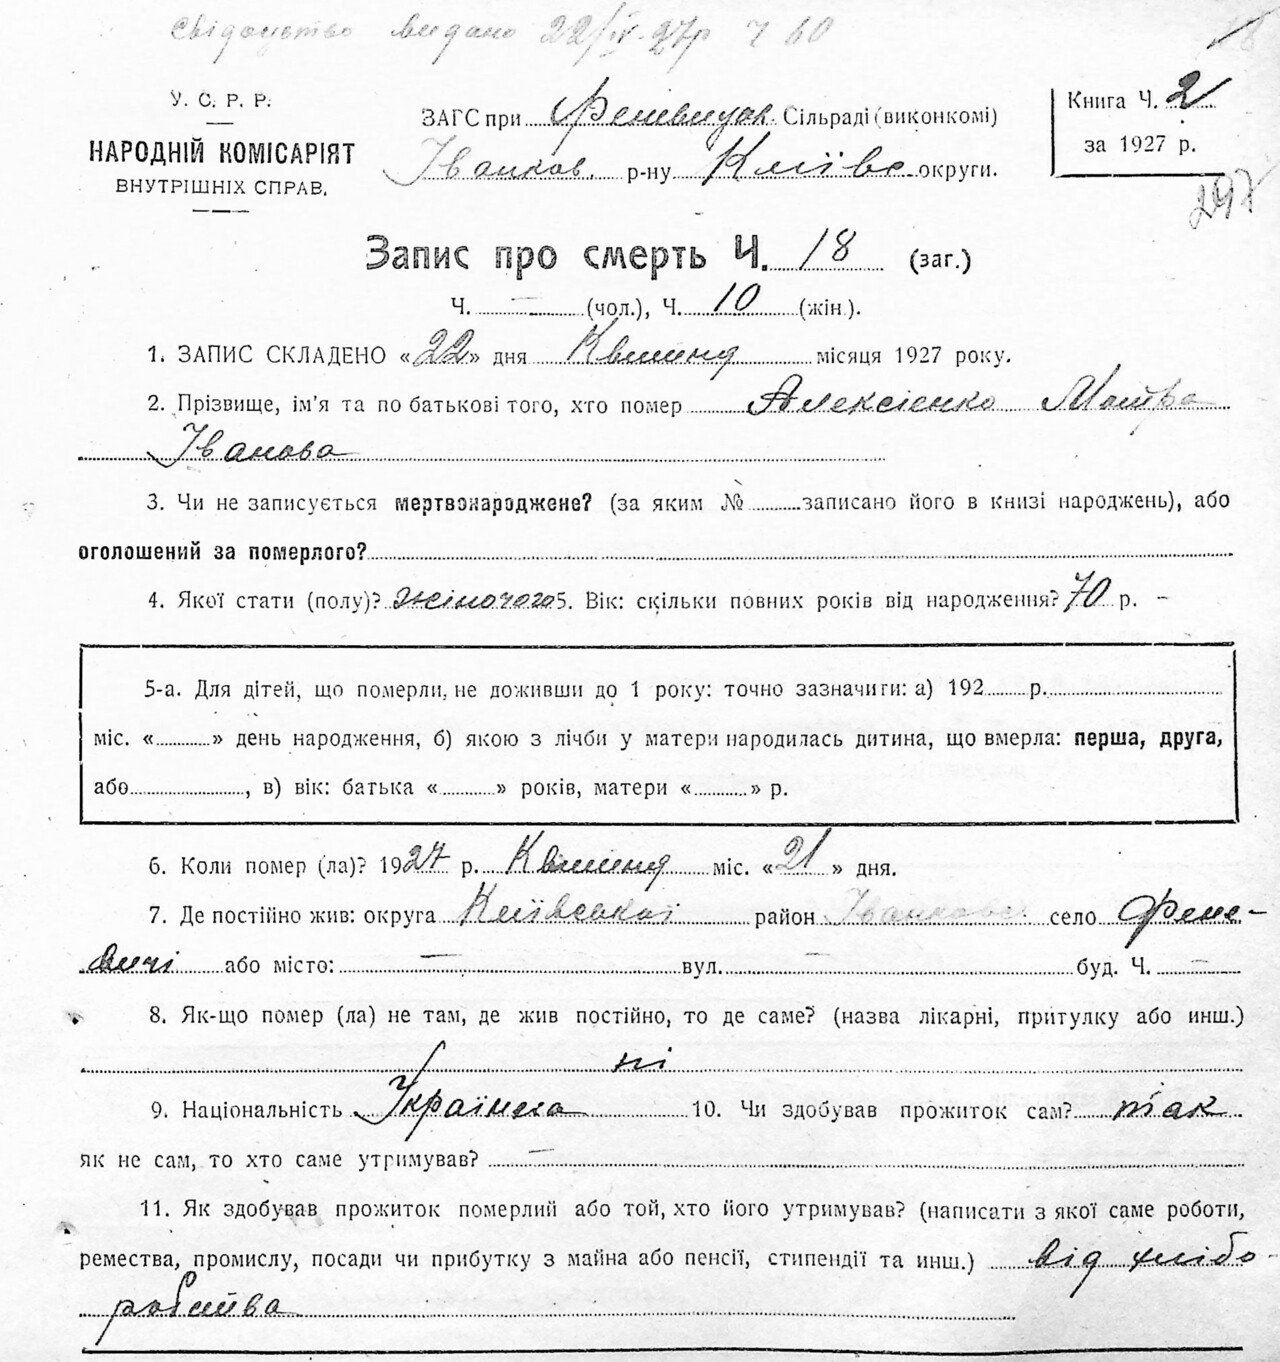 Свідоцтво видано 22/IV-27р Ч 60
У. С. Р. Р.
НАРОДНІЙ КОМІСАРІЯТ
ВНУТРІШНІХ СПРАВ.
ЗАГС при Феневицьк. Сільраді (виконкомі)
Іванков. р-ну Київс округи.
Книга Ч. 2
за 1927 р.
297
Запис про смерть Ч. 18 (заг.)
Ч. — (чол.), Ч. 10 (жін.).
1. ЗАПИС СКЛАДЕНО «22» дня Квитня місяця 1927 року.
2. Прізвище, ім'я та по батькові того, хто помер Алексієнко Мотря
Іванова
3. Чи не записується мертвонароджене? (за яким № записано його в книзі народжень), або
оголошений за померлого?
4. Якої стати (полу)? жіночого 5. Вік: скільки повних років від народження? 70 р. –
5-а. Для дітей, що померли, не доживши до 1 року: точно зазначити: а) 192 р.
міс. « » день народження, б) якою з лічби у матери народилась дитина, що вмерла: перша, друга,
або , в) вік: батька « » років, матери « » р.
6. Коли помер (ла)? 1927 р. Квитня міс. «21» дня.
7. Де постійно жив: округа Київської район Іванковс село Фене-
вичі або місто: — вул. — буд. Ч. —
8. Як-що помер (ла) не там, де жив постійно, то де саме? (назва лікарні, притулку або инш.)
ні
9. Національність Українка 10. Чи здобував прожиток сам? так
як не сам, то хто саме утримував? —
11. Як здобував прожиток померлий або той, хто його утримував? (написати з якої саме роботи,
ремества, промислу, посади чи прибутку з майна або пенсії, стипендії та инш.) від хлібо-
робства